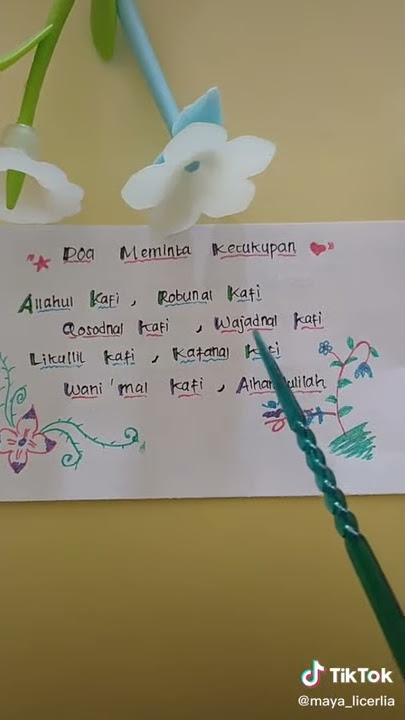 "★ Doa Meminta Kecukupan ❤"
Allahul Kafi, Robunal Kafi
Qosodnal Kafi, Wajadnal Kafi
Likullil Kafi, Kafanal Kafi
Wani'mal Kafi,
TikTok
@maya_licerlia